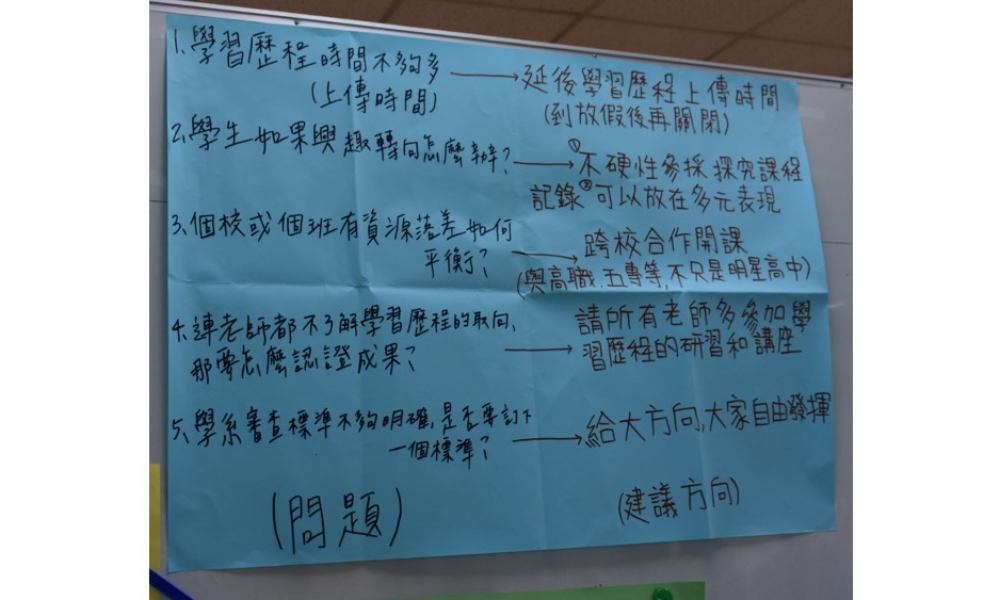 1、學習歷程時間不夠多
(上傳時間)
延後學習歷程上傳時間
(到放假後再關閉)
2、學生如果興趣轉向怎麼辦?
①不硬性參採探究課程
記錄②可以放在多元表現
3、個校或個班有資源落差如何
平衡?
跨校合作開課
(與高職、五專等,不只是明星高中)
4、連老師都不了解學習歷程的取向、
那要怎麼認證成果?
請所有老師多參加學
習歷程的研習和講座
5、學系審查標準不夠明確,是否要訂下
一個標準?
給大方向,大家自由發揮
(問題)
(建議方向)